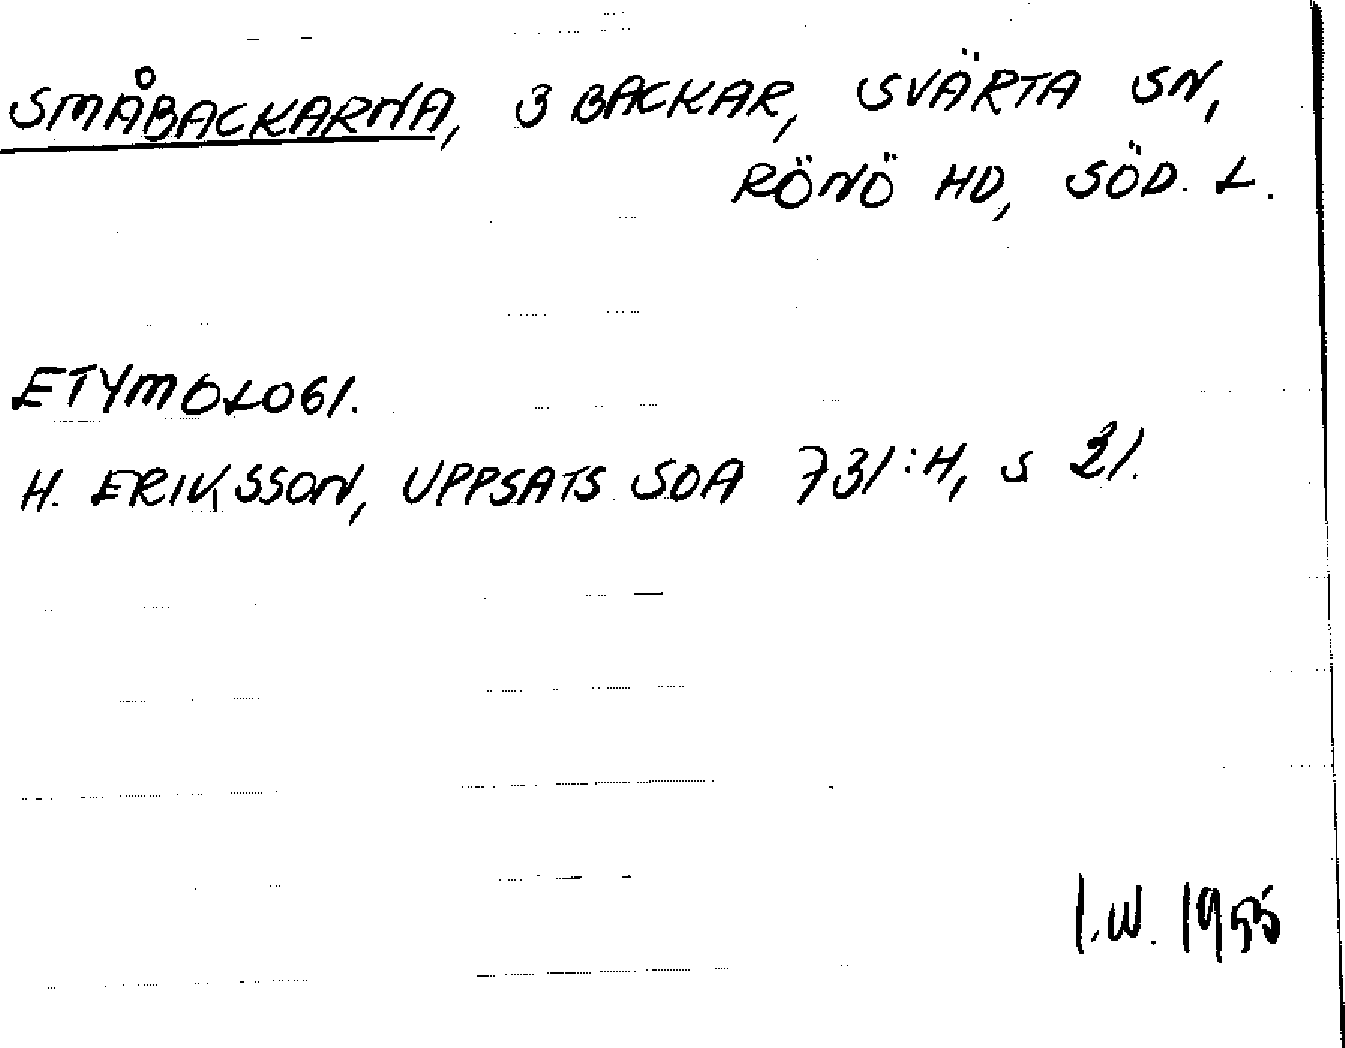 SMÅBACKARNA, 3 BACKAR, SVÄRTA SN,
RÖNÖ HD, SÖD. L.
ETYMOLOGI.
H. ERIKSSON, UPPSATS SOA 731:H, S 21.
I.W. 1955